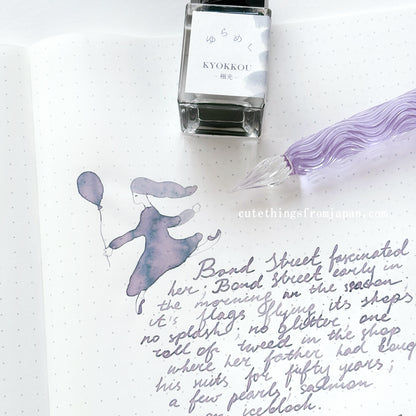 ゆらめく
KYOKKOU
- 極光 -
cutethingsfromjapan.com
Bond Street fascinated
her; Bond Street early in
the morning in the season;
it's flags flying its shops;
no splash; no glitter; one
roll of tweed in the shop
where her father had boug
his suits for fifty years;
a few pearls; salmon
on iceblock.